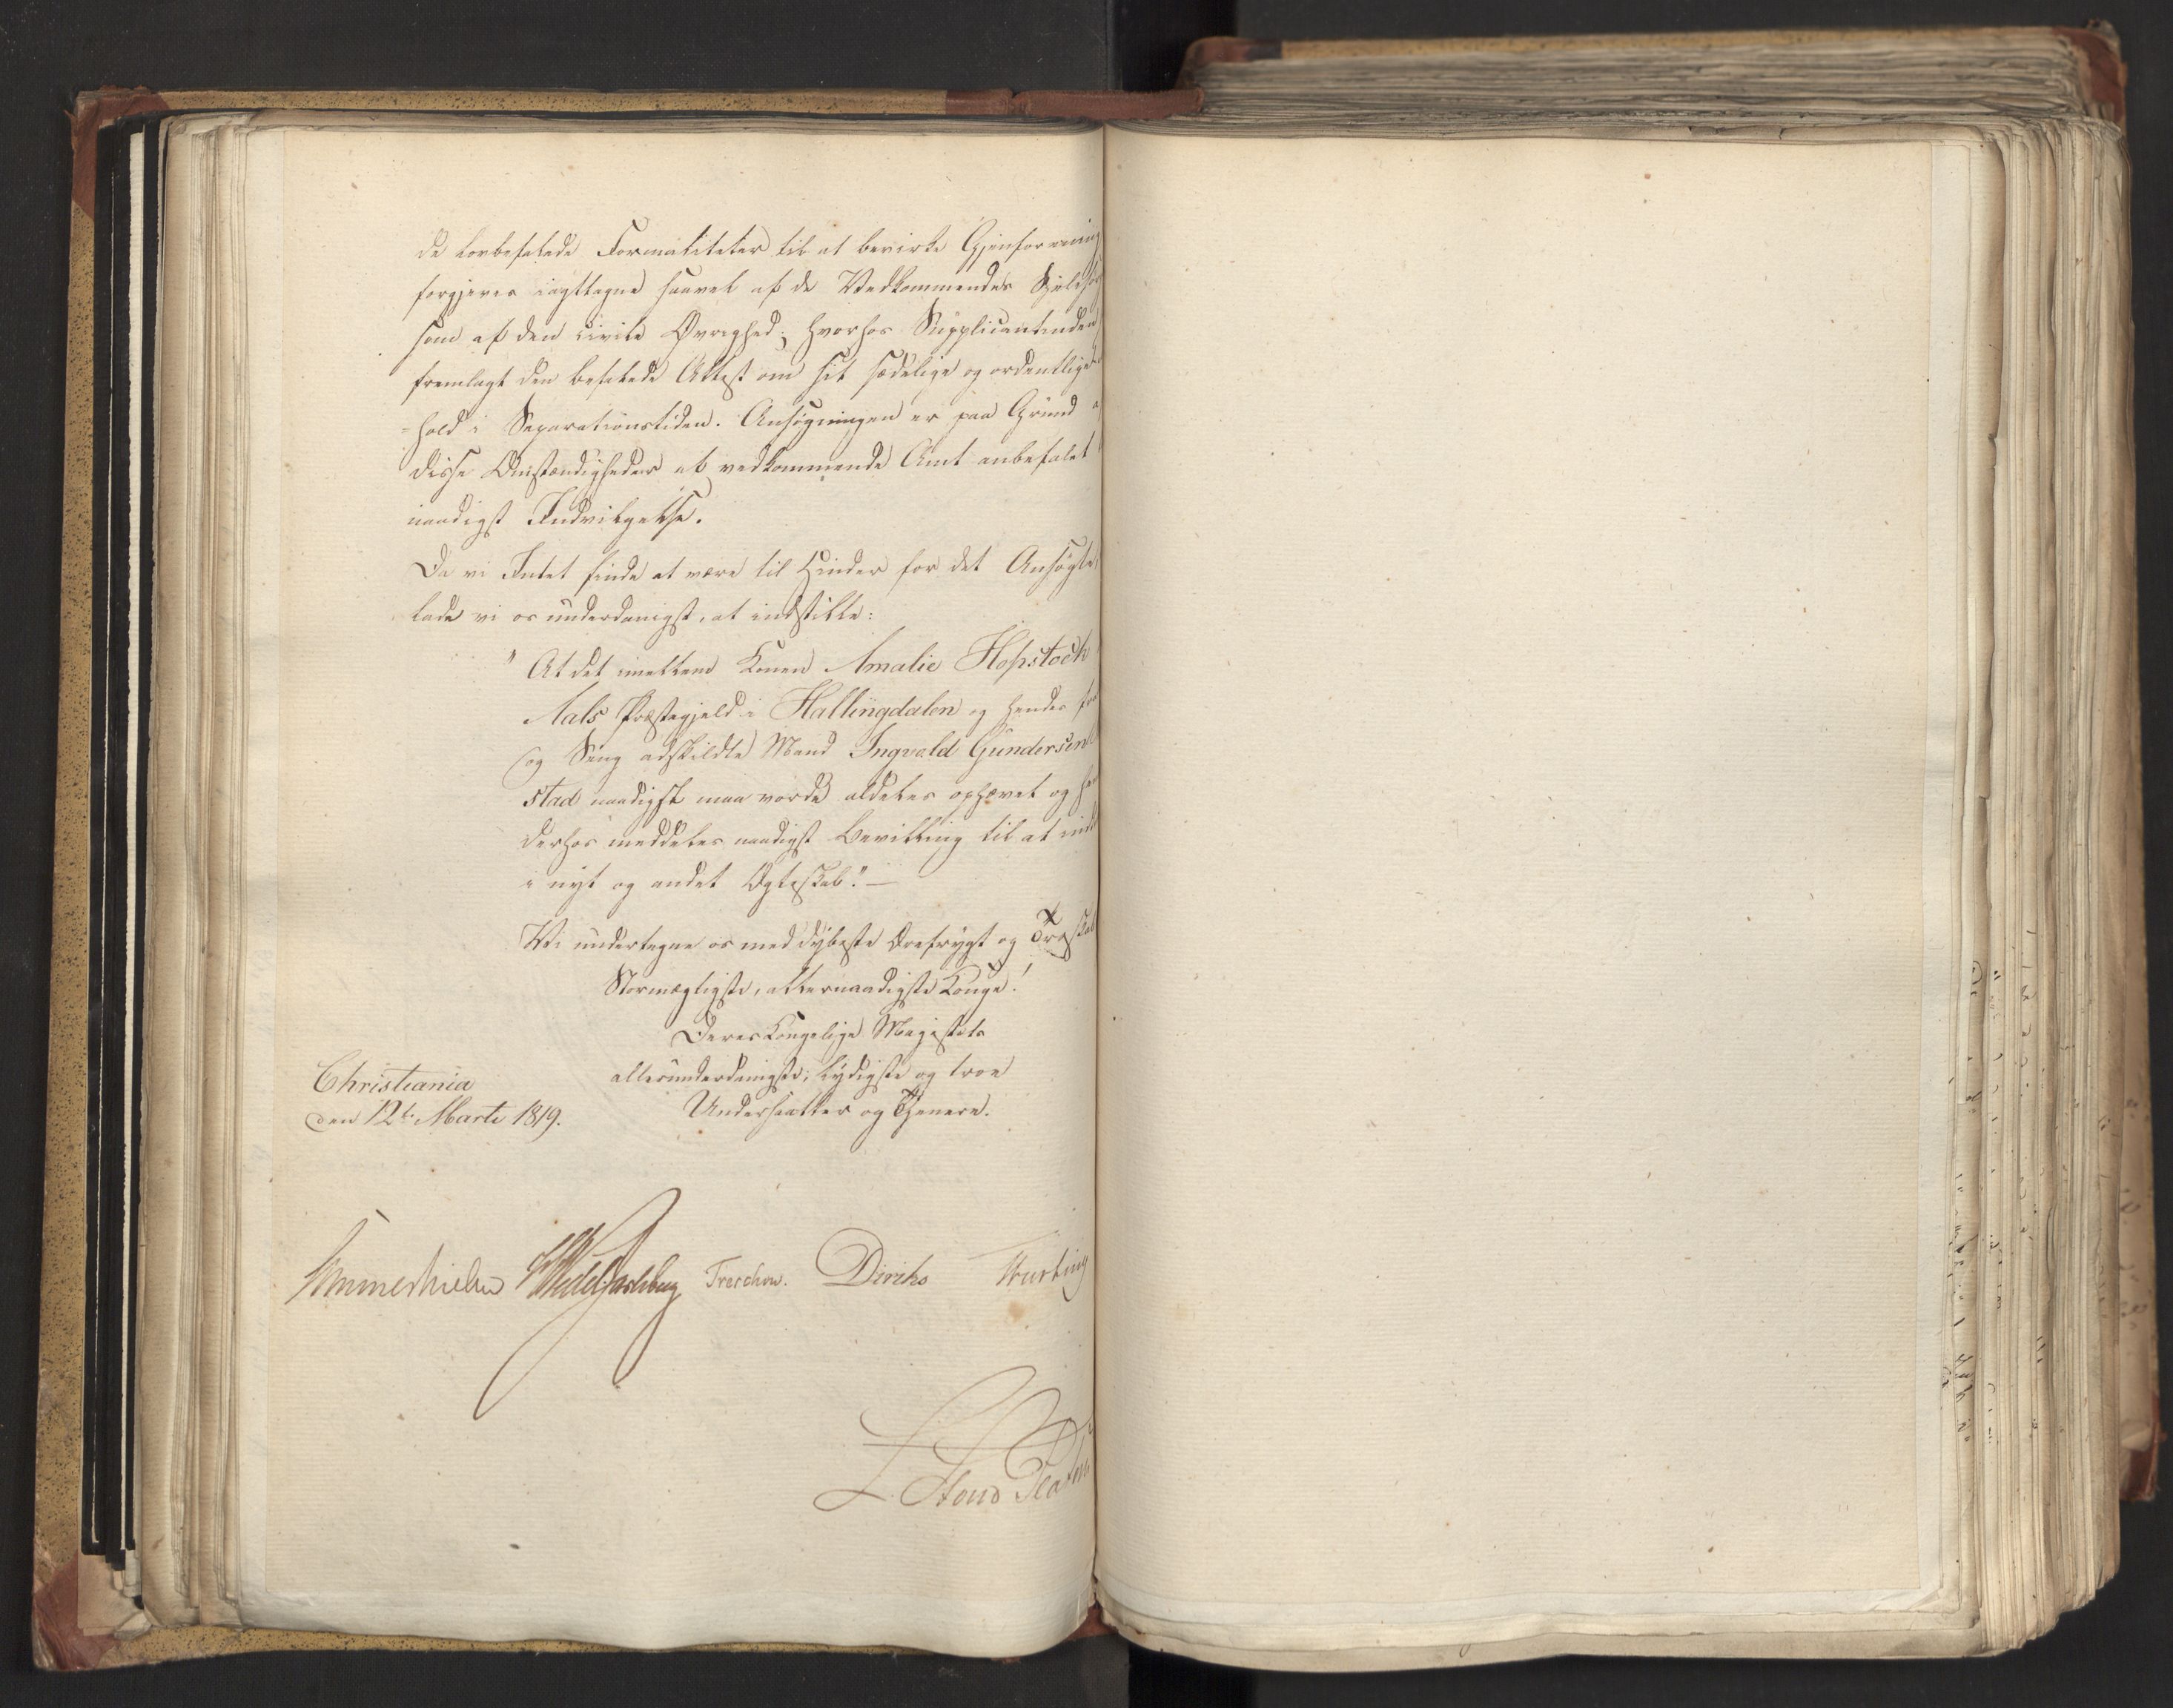 de lovbefalede Formaliteter til at bevirke Gjenforening
forgjeves iagttagne saavel af de Vedkommendes
som af den civile Øvrighed; hvorhos Supplicantinden
fremlagt den befalede Attest om sit sædelige og ordentlige
hold i Separationstiden. Ansøgningen er paa Grund a
disse Omstændigheder af vedkommende Amt anbefalet
naadigst Indvilgelse.
Da vi Intet finde at være til Hinder for det Ansøgte,
lade vi os underdanigst, at indstille:
"At det imellem Konen Amalie Hopstock
Aals Præstegjeld i Hallingdalen og hendes fra
og Seng adskildte Mand Ingvald Gundersen
stad naadigst maa vorde aldeles ophævet og he
derhos meddeles naadigst Bevilling til at indt
i nyt og andet Ægteskab." —
Vi undertegne os med dybeste Ærefrygt og Troskab
Stormægtigste, allernaadigste Konge!
Deres Kongelige Majestets
allerunderdanigste, lydigste og troe
Undersaatter og Tjenere.
Christiania
den 12te Marts 1819.
Sommerhielm Wedel Jarlsberg Treschow. Diriks Krebting
L. Stoud Platou